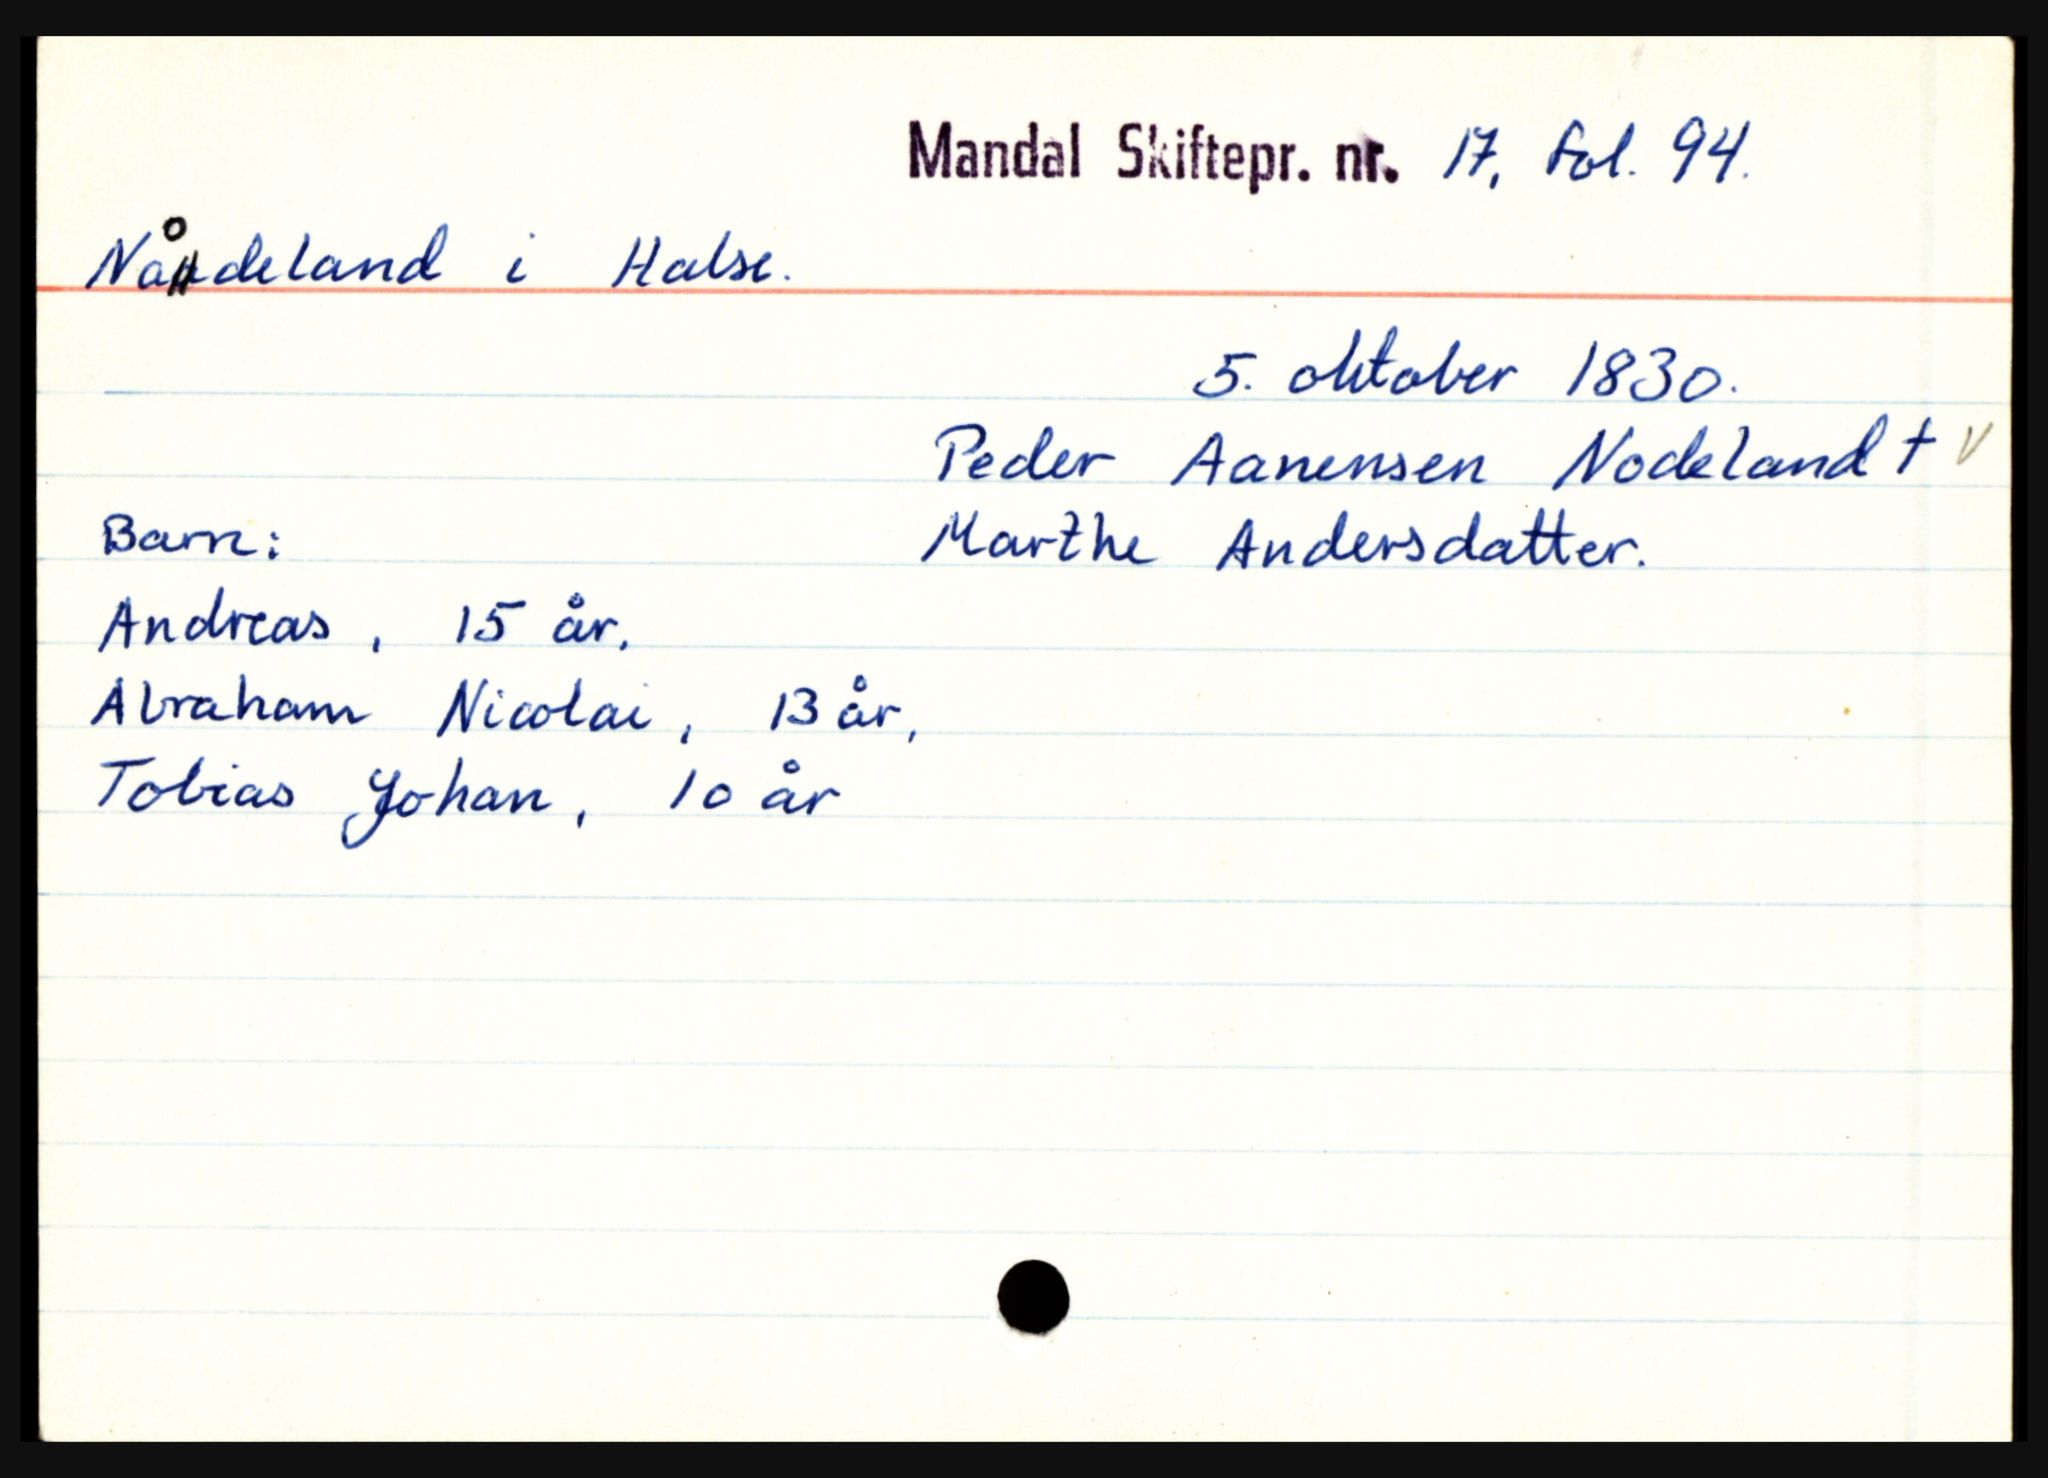 Mandal Skiftepr. nr. 17, fol. 94.
Nådeland i Halse.
5. oktober 1830.
Peder Aanensen Nodeland † V
Barn: Marthe Andersdatter.
Andreas, 15 år,
Abraham Nicolai, 13 år,
Tobias Johan, 10 år